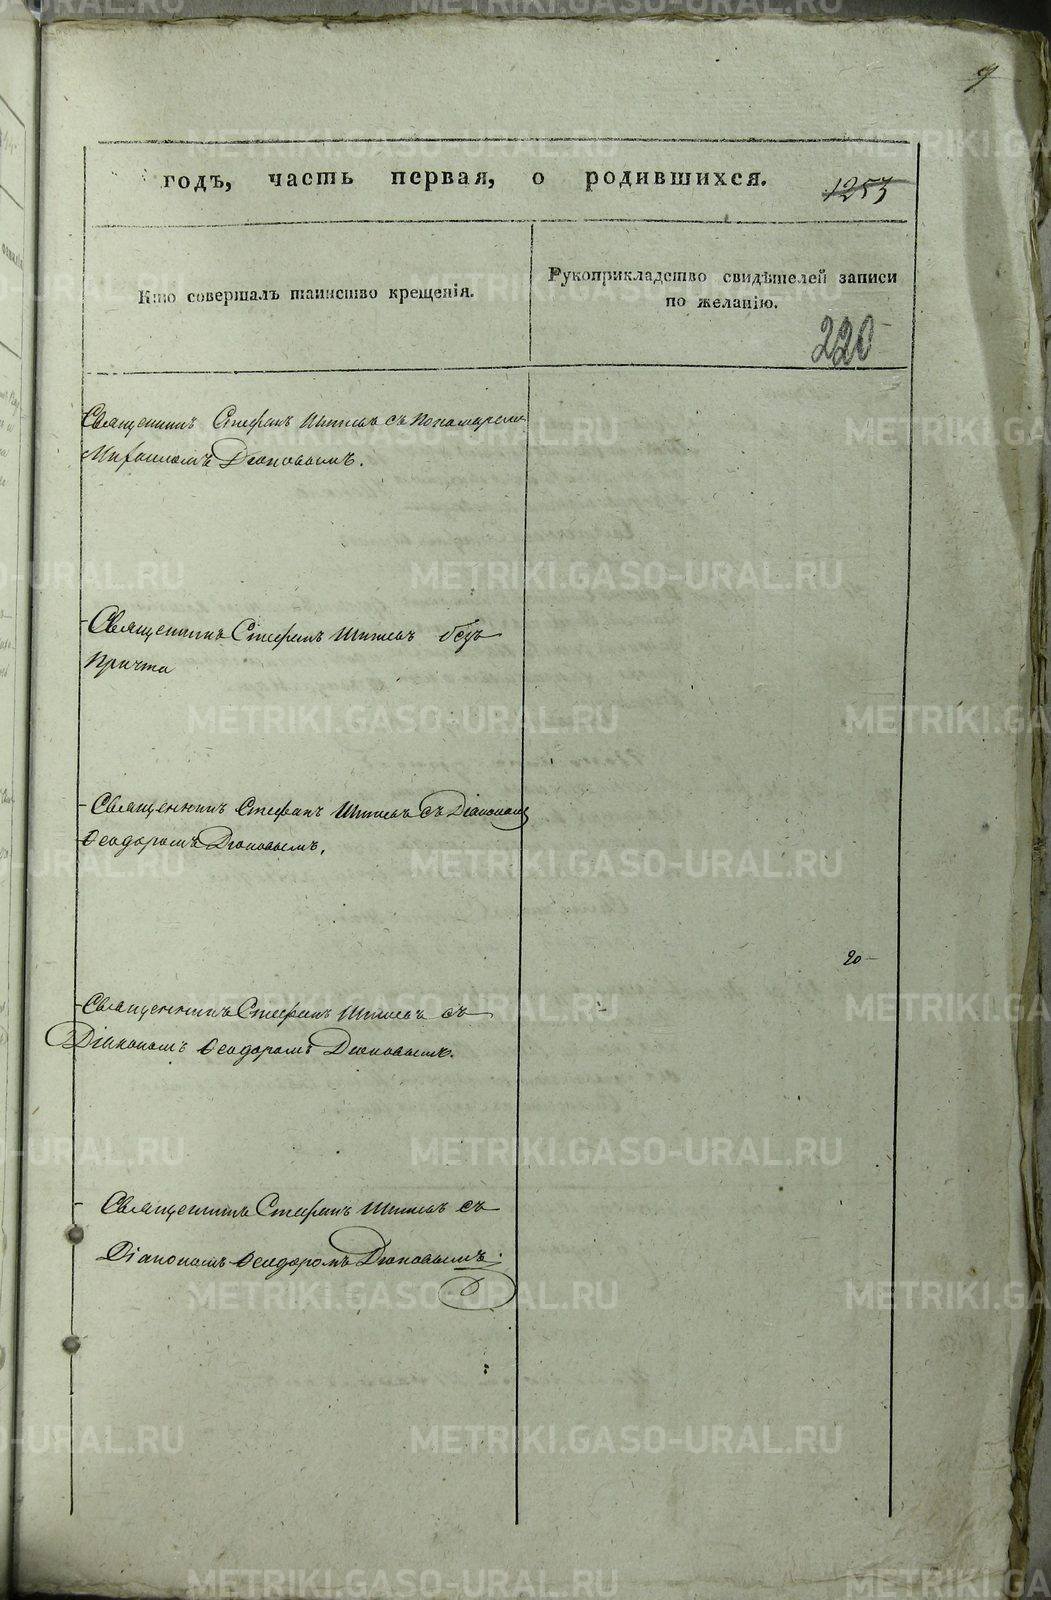 9
годъ, часть первая, о родившихся.
1253
Кто совершалъ таинство крещенія.
Рукоприкладство свидѣтелей записи
по желанію.
220
Священникъ Стефанъ съ Пономаремъ
Михаиломъ Дюковымъ.
Священникъ Стефанъ безъ
Причта
Священникъ Стефанъ съ Діакономъ
Ѳеодоромъ Дюковымъ.
20
Священникъ Стефанъ съ
Діакономъ Ѳеодоромъ Дюковымъ.
Священникъ Стефанъ съ
Діакономъ Ѳеодоромъ Дюковымъ.
METRIKI.GASO-URAL.RU